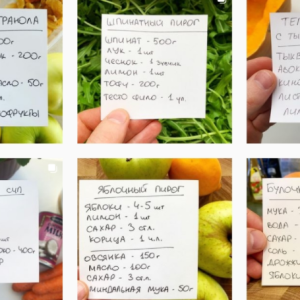 РАНОЛА
00г
К - 200г
СЛО - 50г
Л.
ОФРУКТЫ
ШПИНАТНЫЙ ПИРОГ
ШПИНАТ - 500г
ЛУК - 1 шт
ЧЕСНОК - 1 зубчик
ЛИМОН - 1 шт
ТОФУ - 200г
ТЕСТО ФИЛО - 1 уп.
ТЕП
С ТЫ
ТЫКВ
АВОК
КИН
ЛИМ
СУП
400г
ЯБЛОЧНЫЙ ПИРОГ
ЯБЛОКИ - 4-5 шт
ЛИМОН - 1 шт
САХАР - 3 ст.л.
КОРИЦА - 1 ч.л.
ОВСЯНКА - 150г
МАСЛО - 100г
САХАР - 3 ст.л.
МИНДАЛЬНАЯ МУКА - 50г
БУЛОЧ
МУКА -
ВОДА -
САХАР
СОЛЬ -
ДРОЖЖ
ЯБЛОК